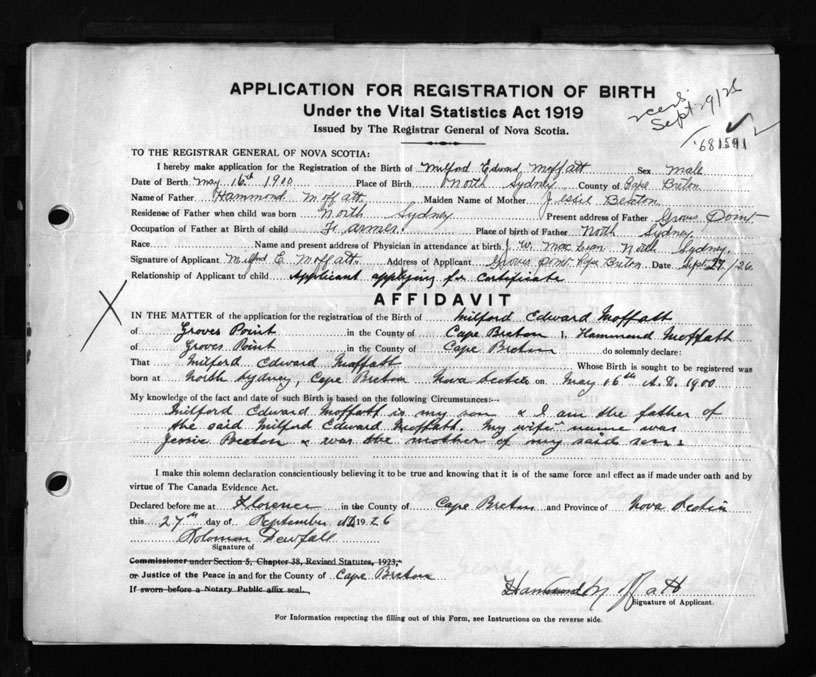 APPLICATION FOR REGISTRATION OF BIRTH
Under the Vital Statistics Act 1919
Issued by The Registrar General of Nova Scotia.
Sept 29/26
681591
TO THE REGISTRAR GENERAL OF NOVA SCOTIA:
I hereby make application for the Registration of the Birth of Milford Edward Moffatt Sex male
Date of Birth May 16th 1900 Place of Birth North Sydney County of Cape Breton
Name of Father Hammond Moffatt Maiden Name of Mother Jessie Beaton
Residence of Father when child was born North Sydney Present address of Father Groves Point
Occupation of Father at Birth of child Farmer. Place of birth of Father North Sydney
Race Name and present address of Physician in attendance at birth J. W. MacLean North Sydney.
Signature of Applicant Milford E. Moffatt. Address of Applicant Groves Point Cape Breton Date Sept 27/26.
Relationship of Applicant to child Applicant applying for Certificate
AFFIDAVIT
IN THE MATTER of the application for the registration of the Birth of Milford Edward Moffatt
of Groves Point in the County of Cape Breton I, Hammond Moffatt
of Groves Point in the County of Cape Breton do solemnly declare:
That Milford Edward Moffatt Whose Birth is sought to be registered was
born at North Sydney, Cape Breton Nova Scotia on May 16th A.D. 1900
My knowledge of the fact and date of such Birth is based on the following Circumstances:--
Milford Edward Moffatt is my son & I am the father of
the said Milford Edward Moffatt. My wife's name was
Jessie Beaton & was the mother of my said son.
I make this solemn declaration conscientiously believing it to be true and knowing that it is of the same force and effect as if made under oath and by
virtue of The Canada Evidence Act.
Declared before me at Florence in the County of Cape Breton and Province of Nova Scotia
this 27th day of September A.D. 1926
Solomon
Signature of
Commissioner under Section 5, Chapter 38, Revised Statutes, 1923,
or Justice of the Peace in and for the County of Cape Breton
If sworn before a Notary Public affix seal.
Hammond Moffatt
Signature of Applicant.
For Information respecting the filling out of this Form, see Instructions on the reverse side.